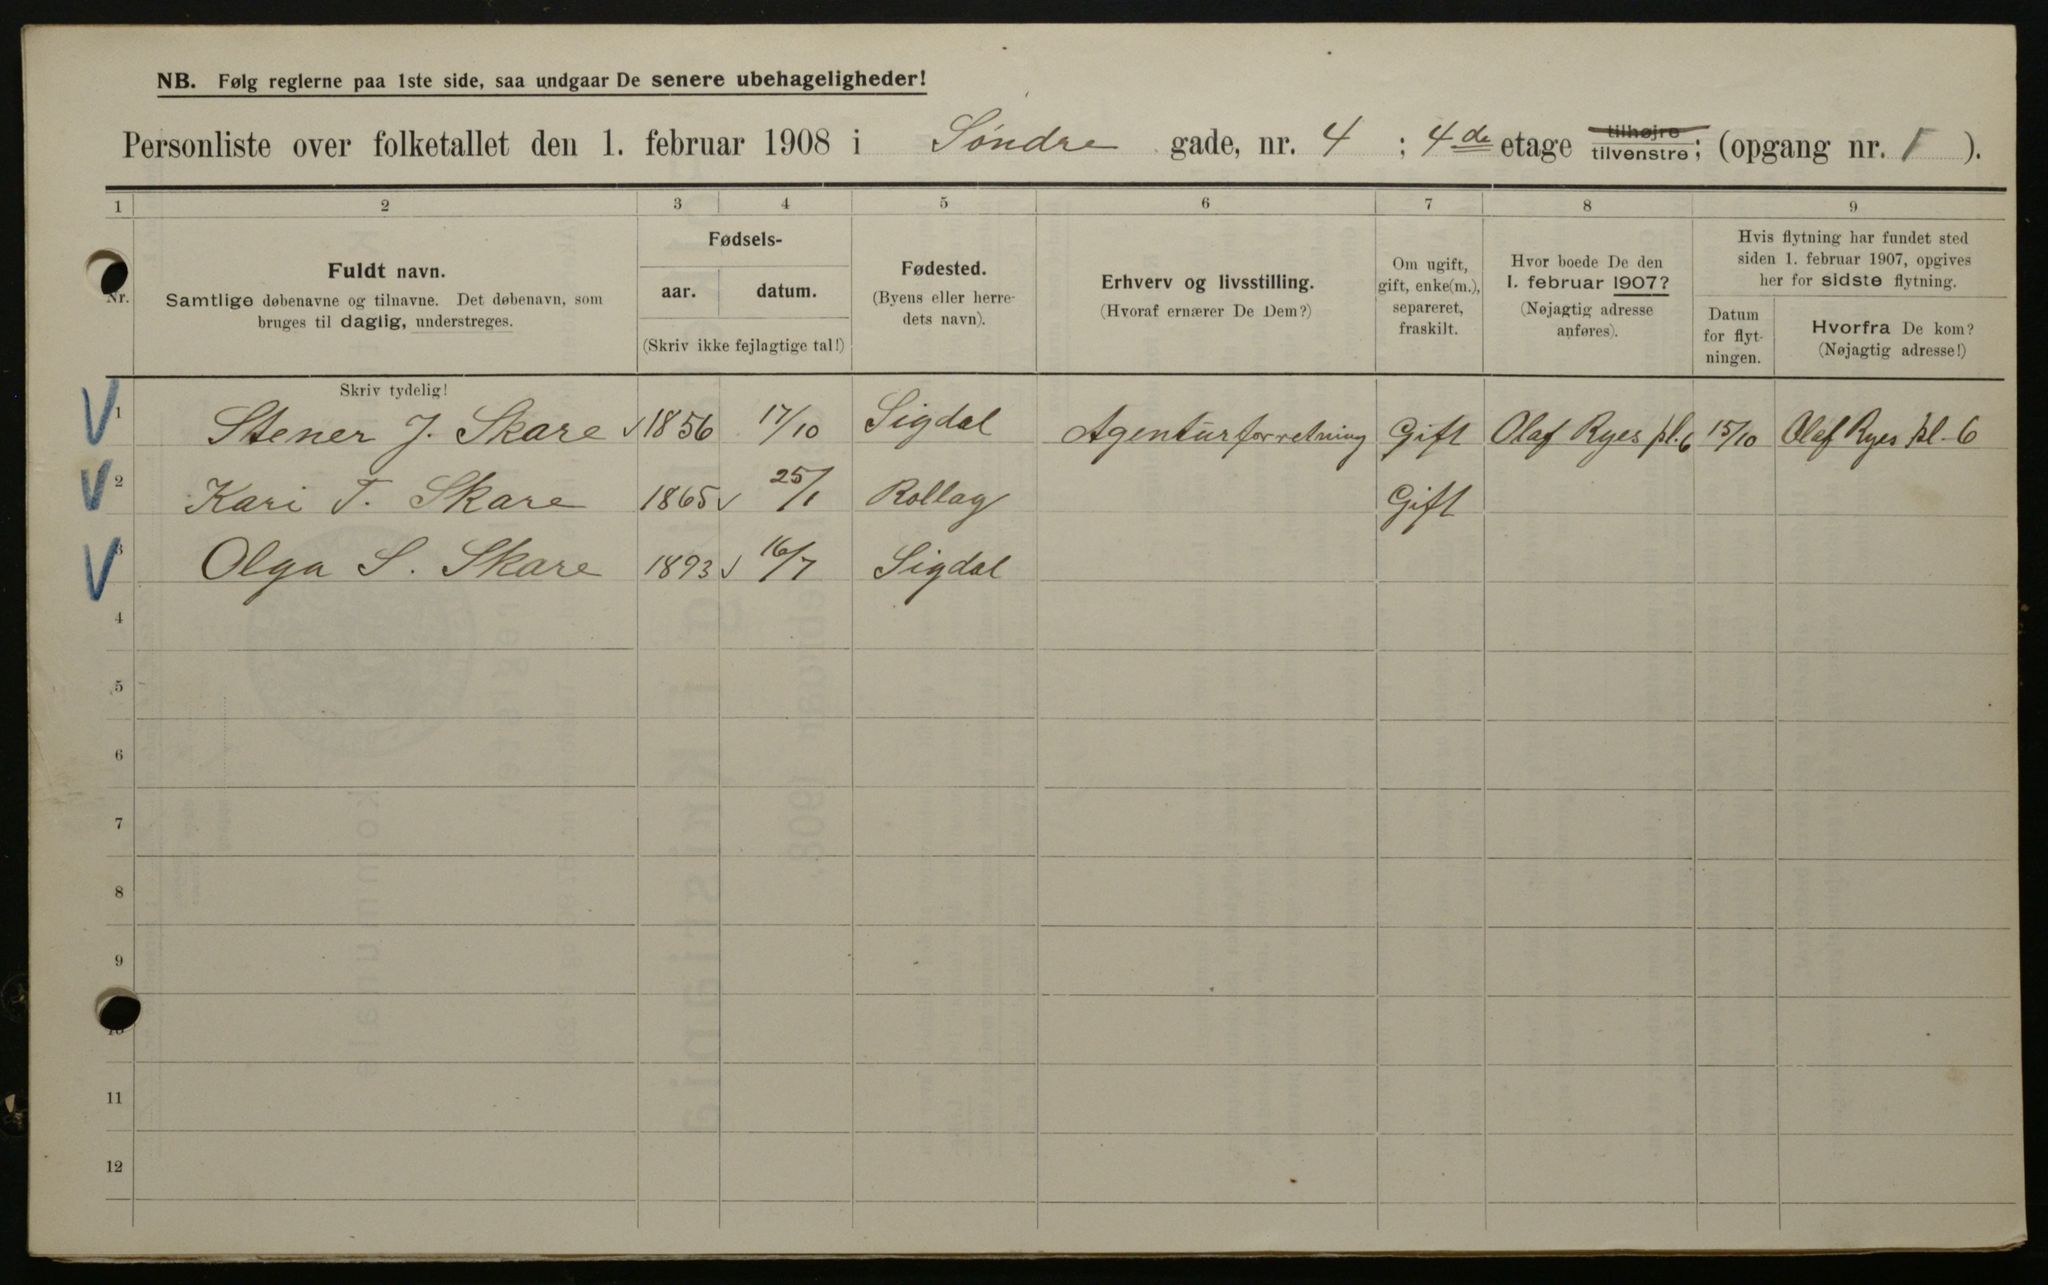 NB. Følg reglerne paa 1ste side, saa undgaar De senere ubehageligheder!
Personliste over folketallet den 1. februar 1908 i Søndre gade, nr. 4 ; 4de etage tilhøjre tilvenstre; (opgang nr. 1 ).
1 2 3 4 5 6 7 8 9
Nr.
Fuldt navn.
Samtlige døbenavne og tilnavne. Det døbenavn, som
bruges til daglig, understreges.
Skriv tydelig!
Fødsels-
aar. datum.
(Skriv ikke fejlagtige tal!)
Fødested.
(Byens eller herre-
dets navn).
Erhverv og livsstilling.
(Hvoraf ernærer De Dem?)
Om ugift,
gift, enke(m.),
separeret,
fraskilt.
Hvor boede De den
1. februar 1907?
(Nøjagtig adresse
anføres).
Hvis flytning har fundet sted
siden 1. februar 1907, opgives
her for sidste flytning.
Datum
for flyt-
ningen.
Hvorfra De kom?
(Nøjagtig adresse!)
1 Stener J. Skare 1856 17/10 Sigdal Agenturforretning Gift Olaf Ryes pl. 6 15/10 Olaf Ryes pl. 6
2 Kari T. Skare 1865 25/1 Rollag Gift
3 Olga S. Skare 1893 16/7 Sigdal
4
5
6
7
8
9
10
11
12